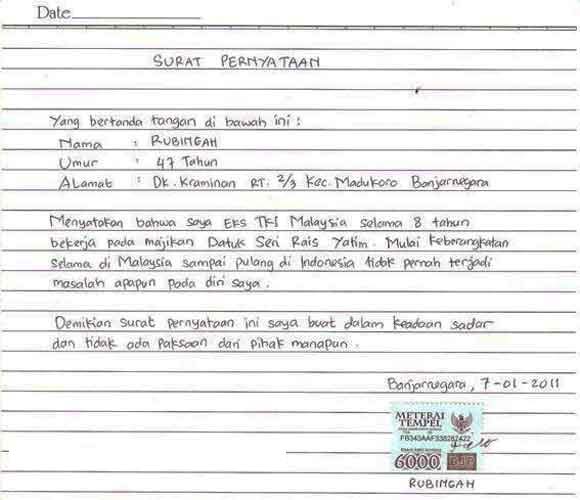 Date
SURAT PERNYATAAN
Yang bertanda tangan di bawah ini :
Nama : RUBINGAH
Umur : 47 Tahun
ALamat : Dk. Kraminan RT. 2/3 Kec. Madukoro Banjarnegara
Menyatakan bahwa saya EKS TKI Malaysia selama 8 tahun
bekerja pada majikan Datuk Seri Rais Yatim. Mulai Keberangkatan
Selama di Malaysia sampai pulang di Indonesia tidak pernah terjadi
masalah apapun pada diri saya.
Demikian surat pernyataan ini saya buat dalam keadaan sadar
dan tidak ada paksaan dari pihak manapun.
Banjarnegara, 7-01-2011
METERAI
TEMPEL
6000 DJP
RUBINGAH